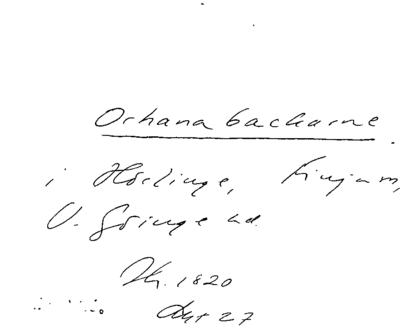 Orhanabackarne
i Hörlinge, Finja sn,
V. Göinge hd.
1820
Akt 27